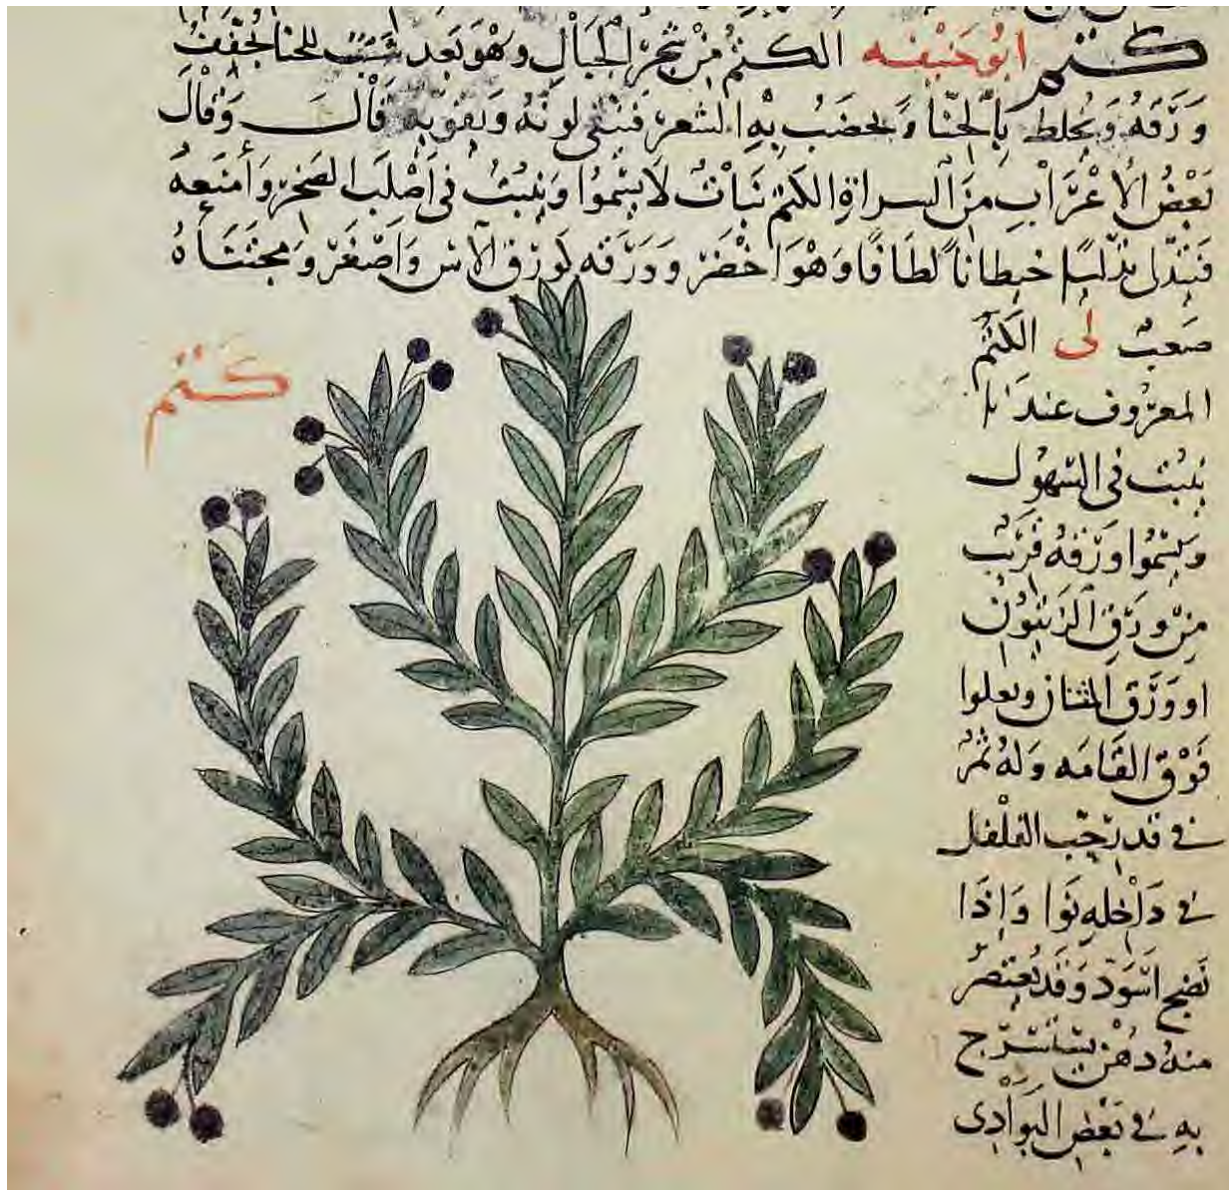 كتم ابو حنيفه الكتم من شجر الجبال وهو يعد شبيب للحنا يجفف
وَرَقهُ وَيخلط بالحنّا وَيخضبُ به الشعر فيبقى لونهُ ويقويه قال وَقال
بَعْضُ الأعْرَاب مِنَ السراةِ الكتم نبَاتٌ لا يسْموا وَينبتُ في أصْلَب الصَخر وَأمنعِهُ
فيتدلى تدَليًا خيطانًا لطافًا وَهْوَ اخْضَر ووَرَقه كورَق الآس وَاصْغَر وَمجتَناهُ
صَعبٌ لى الكتم
كتم
المعرُوف عندَنا
ينبُت في السّهول
وَيسْمُوا وَرَقهُ قريب
مِنْ وَرَق الزيتون
او وَرَق المثنان ويعلوا
فَوْق القامَه وَلهُ ثمَرٌ
في قدر حَبّ الفلفل
في دَاخلهِ نوا وَإذا
نَضج اسْوَدّ وَقد يُعْتصَرُ
منهُ دهن يستسْرج
بهِ في بَعْض البَوادِى